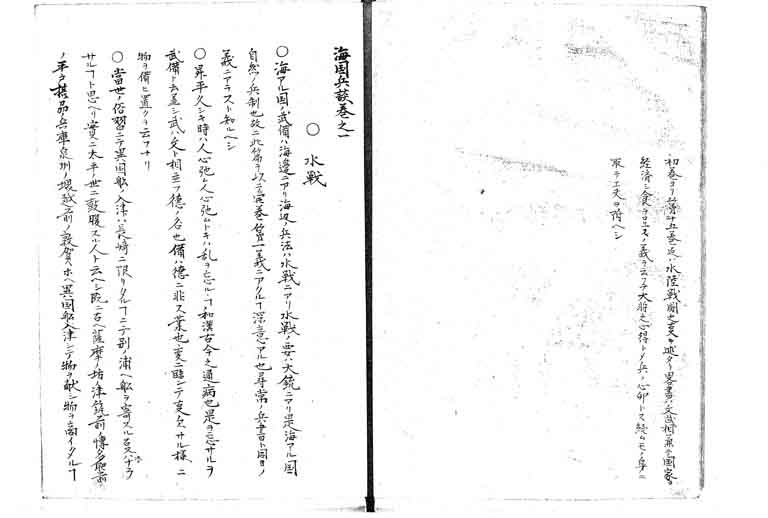 初巻ヨリ第十五巻迄ハ水陸戦闘之変ヲ述タリ畧書ハ文武相兼テ国家ヲ
経済シ食ヲ
義ヲ云フテ大将之心得トメ兵ノ心卯トス
取テ工夫ヲ附ヘシ
海国兵談巻之一
〇 水戦
〇海アル国ノ武備ハ海邉ニアリ海辺ノ兵法ハ水戦ニアリ水戦ノ要ハ大銃ニアリ是海アル国
自然ノ兵制也故ニ此篇ヲ以テ開巻第一義ニアクルヿ深意アル也尋常ノ兵書ト同日ノ
義ニアラスト知ルヘシ
〇昇平久シキ時ハ人心弛ム人心弛ムトキハ乱ヲ忘ルヽヿ和漢古今之通病也是ヲ忘サルヲ
武備ト云蓋シ武ハ文ト相並フ徳ノ名也備ハ徳ニ非ス業也変ニ臨ンテ事欠サル様ニ
物ヲ備ヒ置クヲ云フナリ
〇當世ノ俗習ニテ異国舩ノ入津ハ長崎ニ限リタルヿニテ別ノ浦ヘ舩ヲ寄スルヿ
サルヿト思ヘリ實ニ太平ノ世ニ鼓腹スル人ト云ヘシ既ニ古ヘ薩摩ノ坊ノ津筑前ノ博多肥前
ノ平戸摂州兵庫泉州ノ堺越前ノ敦賀ホヘ異国舩入津シテ物ヲ献シ物ヲ商イタルヿ